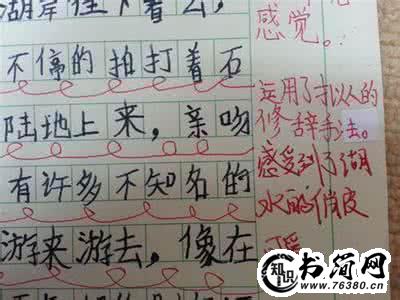 湖岸往下看去，
不停的拍打着石
陆地上来，亲吻
有许多不知名的
游来游去，像在
感觉。
运用了拟人的
修辞手法。
感受到了湖
水的俏皮
可爱
知识
书简网
www.76380.cn